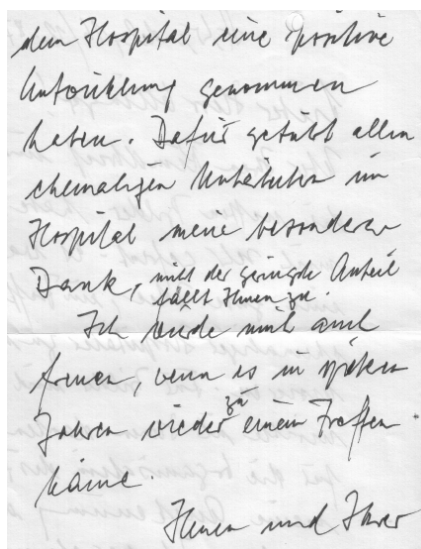 dem Hospital eine positive
Entwicklung genommen
haben. Dafür gebührt allen
ehemaligen Mitarbeitern im
Hospital meine besonderer
Dank, nicht der geringste Anteil
fällt Ihnen zu.
Ich würde mich auch
freuen, wenn es in späteren
Jahren wieder zu einem Treffen
käme.
Ihnen und Ihrer